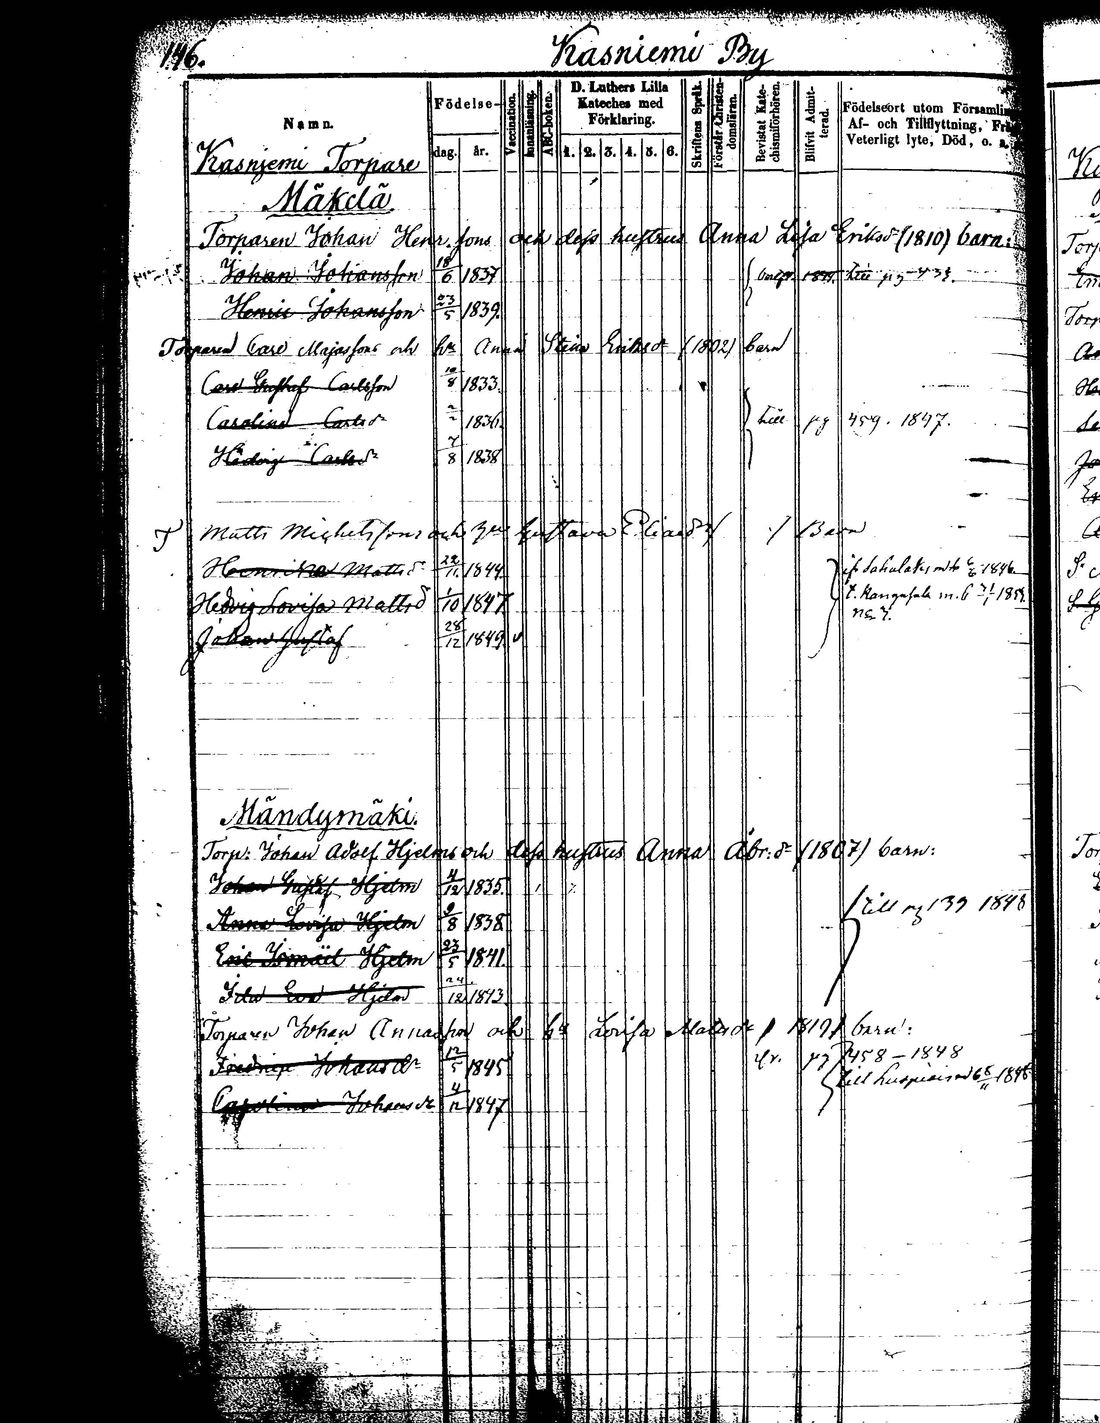 146.
Kasniemi By
Namn.
Födelse-
dag. år.
Vaccination.
Innanläsning.
ABC-boken.
D. Luthers Lilla Kateches med Förklaring.
1. 2. 3. 4. 5. 6.
Skriftens Språk.
Förstår Christendomsläran.
Bevistat Katechismiförhören.
Blifvit Admitterad.
Födelseort utom Församlin
Af- och Tillflyttning, Frä
Veterligt lyte, Död, o. a.
Kasniemi Torpare
Mäkelä
Torparen Johan Henr.sons och dess hustrus Anna Lisa Eriksdr (1810) barn:
Johan Johansson 18/6 1837 till pg 433.
Henric Johansson 23/5 1839.
Torparen Carl Majassons och hu Anna Stina Eriksdr (1802) barn
Carl Gustaf Carlsson 10/8 1833.
Carolina Carlsdr 1836. till pg 459. 1847.
Hedvig Carlsdr 7/8 1838
T Matts Michelssons och Gustava Eliaedr Barn
Henrika Mattsd 22/11 1844
Hedvig Lovisa Mattsd 1/10 1847 t. Kangasala m. 6
Johan Gustaf 28/12 1849 v
Mändymäki.
Torp: Johan Adolf Hjelms och dess hustrus Anna Abr:dr (1807) barn:
Johan Gustaf Hjelm 4/12 1835.
Anna Lovisa Hjelm 9/8 1838 till pg 139 1848
Eric Ismäel Hjelm 23/5 1841.
Ida Eva Hjelm 24/12 1843
Torparen Johan Annasson och hu Lovisa Matsdr 1819 barn:
Fredrica Johansdr 12/5 1845 fr. pg 458 - 1848
Carolina Johansdr 4/12 1847